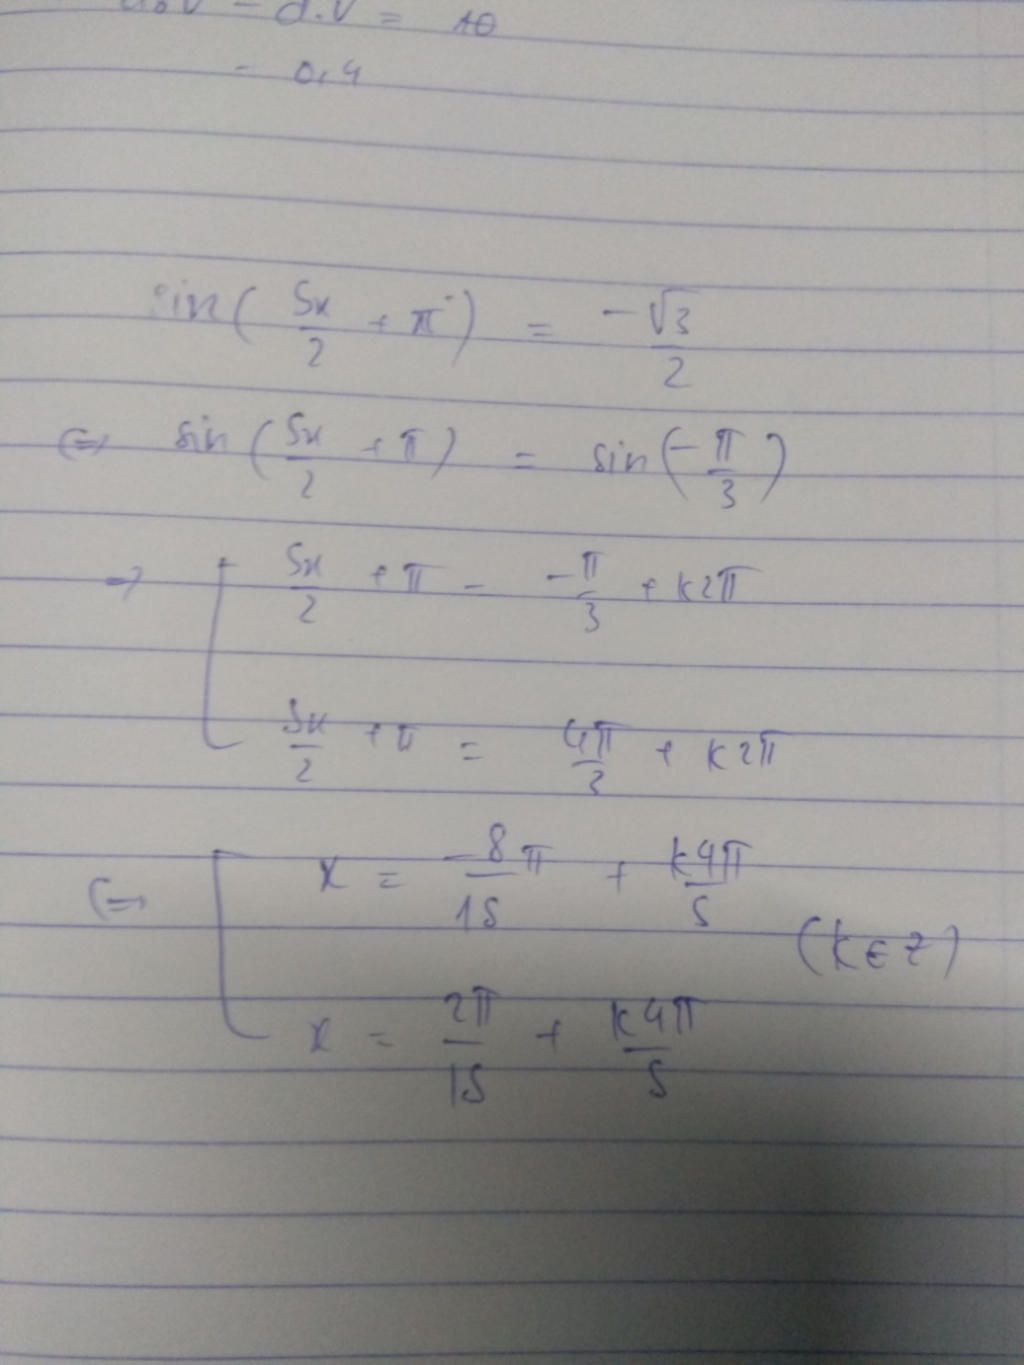 - d.V = 10
- 0,4
sin( 5x/2 + π ) = -√3/2
⇔ sin ( 5x/2 + π ) = sin( -π/3 )
→ [ 5x/2 + π = -π/3 + k2π
5x/2 + π = 4π/3 + k2π
⇔ [ x = -8π/15 + k4π/5
(k ∈ Z)
x = 2π/15 + k4π/5